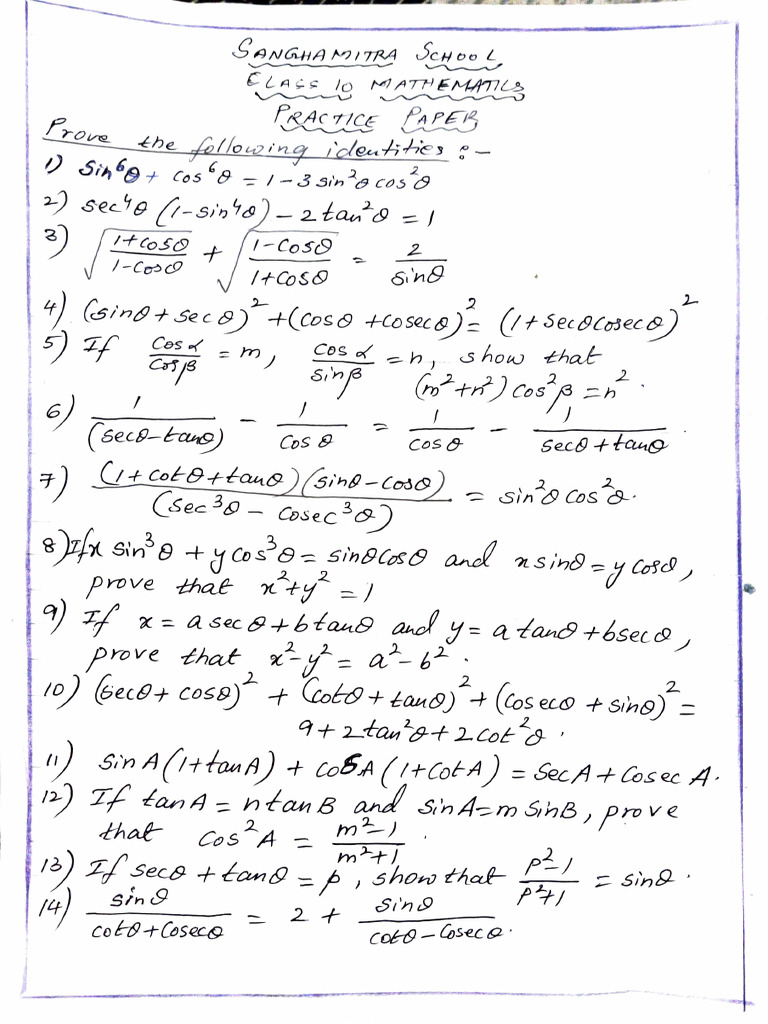 SANGHAMITRA SCHOOL
CLASS 10 MATHEMATICS
PRACTICE PAPER
Prove the following identities :-
1) sin⁶θ + cos⁶θ = 1 - 3 sin²θ cos²θ
2) sec⁴θ (1 - sin⁴θ) - 2 tan²θ = 1
3) √((1+cosθ)/(1-cosθ)) + √((1-cosθ)/(1+cosθ)) = 2/sinθ
4) (sinθ + secθ)² + (cosθ + cosecθ)² = (1 + secθcosecθ)²
5) If cosα/cosβ = m, cosα/sinβ = n, show that
(m²+n²) cos²β = n².
6) 1/(secθ-tanθ) - 1/cosθ = 1/cosθ - 1/(secθ+tanθ).
7) (1+cotθ+tanθ)(sinθ-cosθ)/(sec³θ - cosec³θ) = sin²θ cos²θ.
8) If x sin³θ + y cos³θ = sinθcosθ and x sinθ = y cosθ,
prove that x²+y² = 1
9) If x = a secθ + b tanθ and y = a tanθ + b secθ,
prove that x²-y² = a²-b².
10) (secθ + cosθ)² + (cotθ + tanθ)² + (cosecθ + sinθ)² =
9 + 2 tan²θ + 2 cot²θ.
11) sin A (1+tan A) + cos A (1+cot A) = Sec A + Cosec A.
12) If tan A = n tan B and sin A = m sin B, prove
that cos²A = (m²-1)/(m²+1).
13) If secθ + tanθ = p, show that (p²-1)/(p²+1) = sinθ.
14) sinθ/(cotθ+cosecθ) = 2 + sinθ/(cotθ-cosecθ).